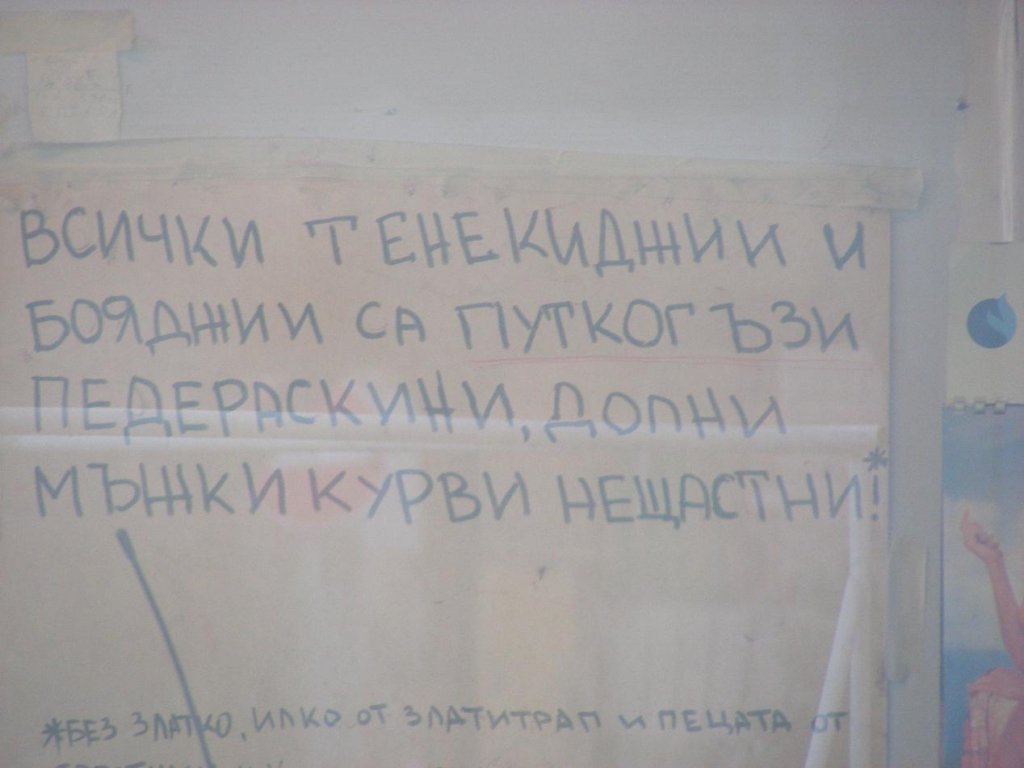 ВСИЧКИ ТЕНЕКИДЖИИ И
БОЯДЖИИ СА ПУТКОГЪЗИ
ПЕДЕРАСКИНИ, ДОЛНИ
МЪЖКИ КУРВИ НЕЩАСТНИ!*
*БЕЗ ЗЛАТКО, ИЛКО ОТ ЗЛАТИТРАП И ПЕЦАТА ОТ